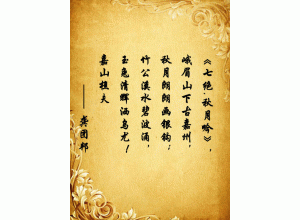 《七绝·秋月吟》,
峨眉山下古嘉州,
秋月朗朗画银钩;
竹公溪水碧波涌,
玉兔清辉洒乌尤!
嘉山樵夫
——龚团邦